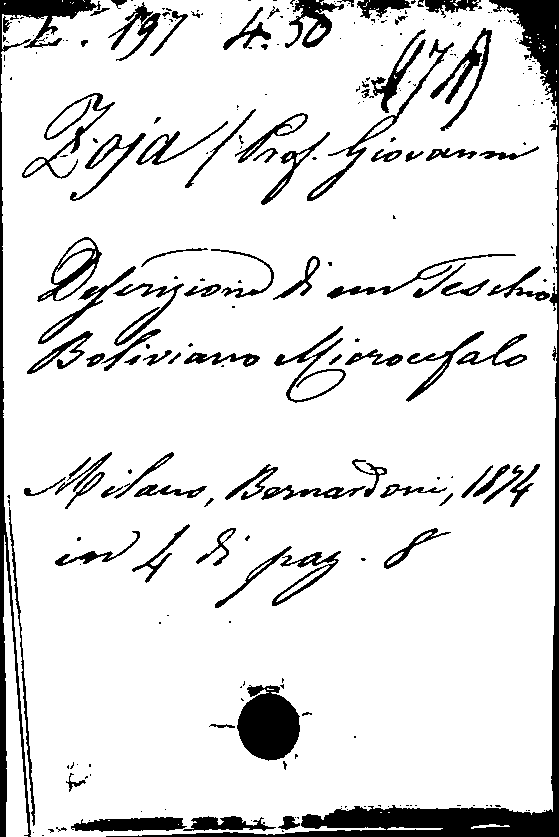 L. 197 4.50
Zoja / Prof. Giovanni
Descrizione di un Teschio
Boliviano Microcefalo
Milano, Bernardoni, 1874
in 4 di pag. 8